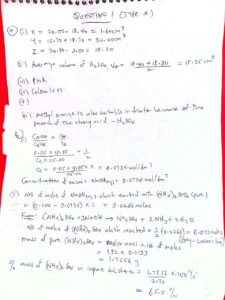 QUESTION 1 (TYPE A)
(a) (i) X = 20.00 - 18.40 = 1.60cm³
Y = 15.70 + 18.70 = 34.40cm³
Z = 20.80 - 2.50 = 18.30
(ii) Average volume of H₂SO₄ VA = 18.40 + 18.30 / 2 = 18.35cm³
(iii) Pink
(iv) Colourless
(v)
Methyl orange is also suitable indicator because of the
of the strong acid - H₂SO₄
b (i) CAVA / CBVB = nA / nB
0.05 × 18.35 / CB × 25.00 = 1/2
CB = 0.05 × 18.35 × 2 / 25.00 = 0.0734 mol/dm³
Concentration of excess NaOH = 0.0734 mol/dm³
No of moles of NaOH which reacted with (NH₄)₂SO₄ (pure)
= (0.100 - 0.0734) × 1 = 0.0266 moles
From: (NH₄)₂SO₄ + 2NaOH → Na₂SO₄ + 2NH₃ + 2H₂O
No of moles of (NH₄)₂SO₄ which reacted = 1/2 (0.0266) = 0.0133 moles
mass of pure (NH₄)₂SO₄ = molar mass × no of moles
= 132 × 0.0133
= 1.7556 g
% mass of (NH₄)₂SO₄ in impure substance = 1.7556 / 2.70 × 100%
= 65.0 %